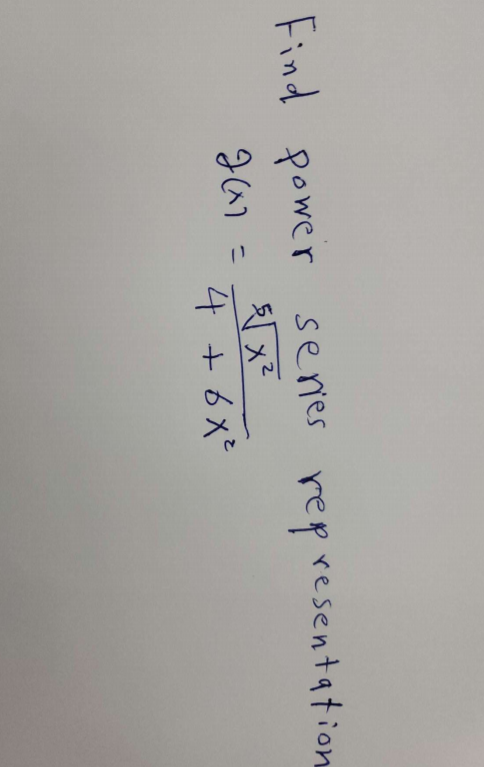 Find power series representation
g(x) = ⁵√x² / 4 + 6x²